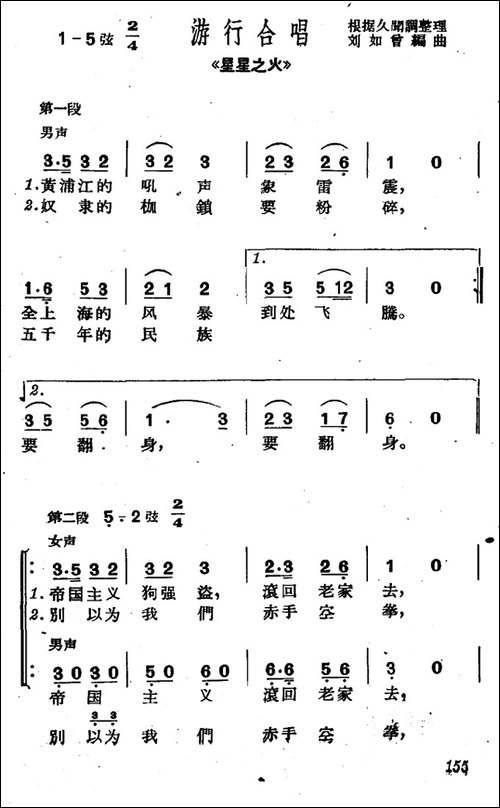 1-5弦 2/4 游行合唱 根据久聞調整理
《星星之火》 刘如曾編曲
第一段
男声
3·5 3 2 | 3 2 3 | 2 3 2 6 | 1 0 |
1.黃浦江的 吼 声 象 雷 震，
2.奴 隶 的 枷 鎖 要 粉 碎，
1.
1·6 5 3 | 2 1 2 | 3 5 5 12 | 3 0 :
全上 海的 风 暴 到处 飞 騰。
五千 年的 民 族
2.
3 5 5 6 | 1· 3 | 2 3 1 7 | 6 0 |
要 翻· 身， 要 翻 身。
第二段 5-2弦 2/4
女声
: 3·5 3 2 | 3 2 3 | 2·3 2 6 | 1 0
1.帝国主义 狗强 盜， 滾回 老家 去，
2.別 以为 我 們 赤手 空 拳，
男声
: 3 0 3 0 | 5 0 6 0 | 6·6 5 6 | 3 0
帝 国 主 义 滾回 老家 去，
3 3
別 以为 我 們 赤手 空 拳，
155